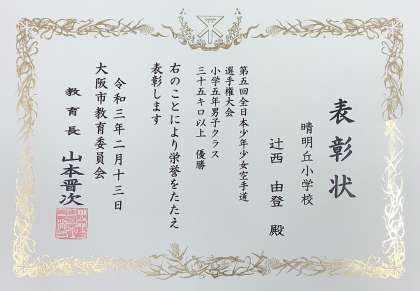 表彰状
晴明丘小学校
辻西 由登 殿
第五回全日本少年少女空手道
選手権大会
小学五年男子クラス
三十五キロ以上 優勝
右のことにより栄誉をたたえ
表彰します
令和三年二月十三日
大阪市教育委員会
教育長 山本晋次